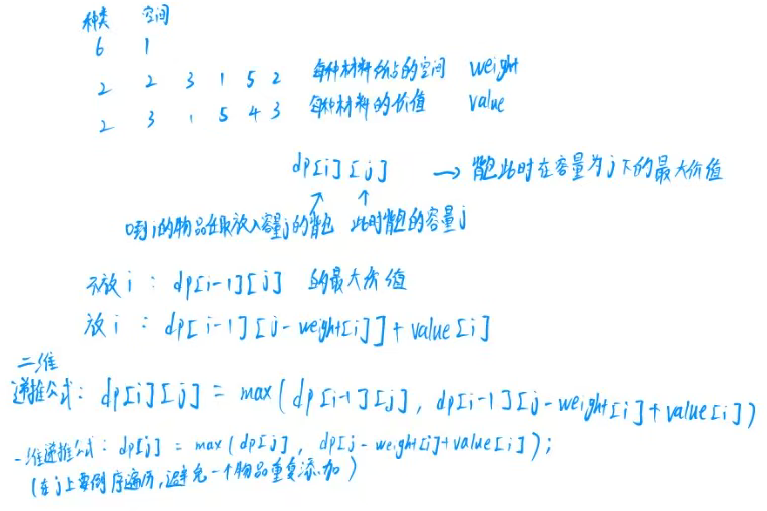 种类 空间
6 1
2 2 3 1 5 2 每种材料所占的空间 weight
2 3 1 5 4 3 每种材料的价值 value
dp[i][j] → 背包此时在容量为j下的最大价值
0到i的物品任取放入容量j的背包 此时背包的容量j
不放i : dp[i-1][j] 的最大价值
放i : dp[i-1][j-weight[i]]+value[i]
二维
递推公式: dp[i][j] = max(dp[i-1][j], dp[i-1][j-weight[i]+value[i])
一维递推公式: dp[j] = max(dp[j], dp[j-weight[i]+value[i]);
(在j上要倒序遍历,避免一个物品重复添加)